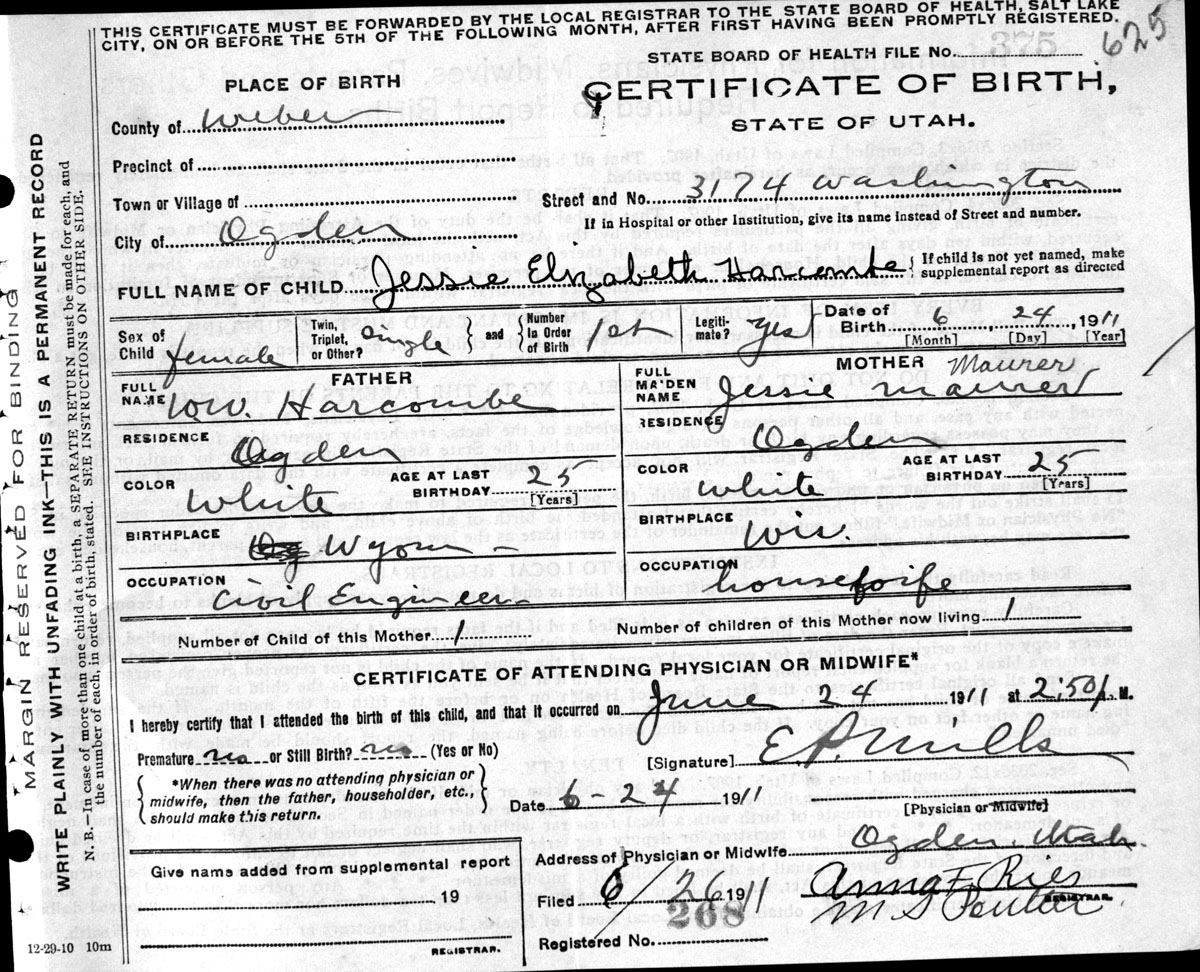 THIS CERTIFICATE MUST BE FORWARDED BY THE LOCAL REGISTRAR TO THE STATE BOARD OF HEALTH, SALT LAKE
CITY, ON OR BEFORE THE 5TH OF THE FOLLOWING MONTH, AFTER FIRST HAVING BEEN PROMPTLY REGISTERED.
625
STATE BOARD OF HEALTH FILE No. 375
PLACE OF BIRTH
CERTIFICATE OF BIRTH,
STATE OF UTAH.
County of Weber
Precinct of
Town or Village of
Street and No. 3174 Washington
If in Hospital or other Institution, give its name instead of Street and number.
City of Ogden
FULL NAME OF CHILD Jessie Elizabeth Harcombe { If child is not yet named, make
supplemental report as directed
Sex of
Child female
Twin,
Triplet,
or Other? single } and { Number
in Order
of Birth 1st
Legiti-
mate? yes
Date of
Birth 6 24 1911
[Month] [Day] [Year]
FATHER
FULL
NAME W.W. Harcombe
RESIDENCE Ogden
COLOR White
AGE AT LAST
BIRTHDAY 25
[Years]
BIRTHPLACE Wyom -
OCCUPATION
Civil Engineer
MOTHER Maurer
FULL
MAIDEN
NAME Jessie Maurer
RESIDENCE Ogden
COLOR white
AGE AT LAST
BIRTHDAY 25
[Years]
BIRTHPLACE Wis.
OCCUPATION
housewife
Number of Child of this Mother 1
Number of children of this Mother now living 1
CERTIFICATE OF ATTENDING PHYSICIAN OR MIDWIFE*
I hereby certify that I attended the birth of this child, and that it occurred on June 24 1911 at 2,50 M.
Premature no or Still Birth? no (Yes or No)
[Signature] E P Mills
[Physician or Midwife]
{ *When there was no attending physician or
midwife, then the father, householder, etc.,
should make this return. }
Date 6-24 1911
Address of Physician or Midwife Ogden Utah.
Give name added from supplemental report
19
REGISTRAR.
Filed 6 26 1911
Anna F. Ries
M S
REGISTRAR.
268
Registered No.
12-29-10 10m
MARGIN RESERVED FOR BINDING
WRITE PLAINLY WITH UNFADING INK—THIS IS A PERMANENT RECORD
N. B.—In case of more than one child at a birth, a SEPARATE RETURN must be made for each, and
the number of each, in order of birth, stated. SEE INSTRUCTIONS ON OTHER SIDE.